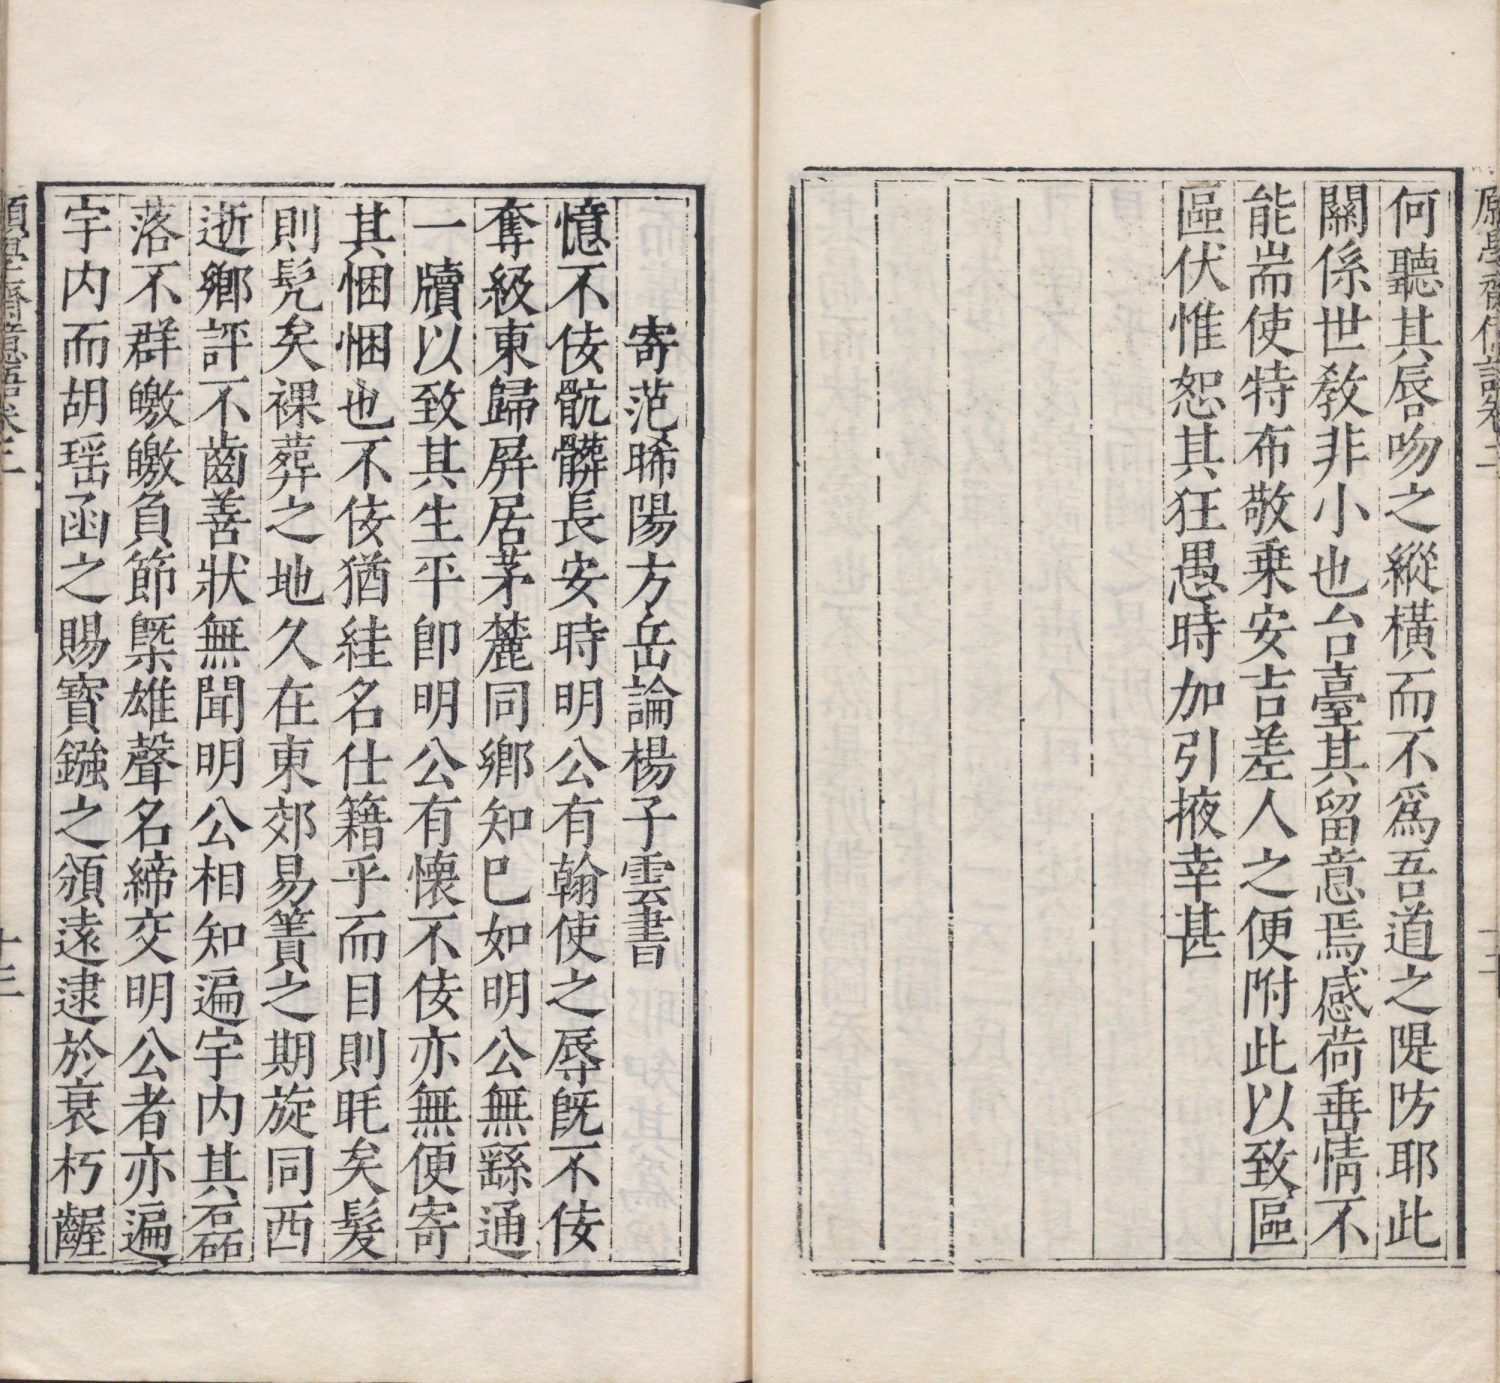 願學齋億語卷三
何聽其唇吻之縱橫而不爲吾道之隄防耶此
關係世教非小也台臺其留意焉感荷垂情不
能耑使特布敬乗安吉差人之便附此以致區
區伏惟恕其狂愚時加引掖幸甚
寄范晞陽方岳論楊子雲書
憶不佞骯髒長安時明公有翰使之辱旣不佞
奪級東歸屛居茅麓同鄉知巳如明公無繇通
一牘以致其生平卽明公有懷不佞亦無便寄
其悃悃也不佞猶絓名仕籍乎而目則眊矣髮
則髡矣裸葬之地久在東郊易簀之期旋同西
逝鄉評不齒善狀無聞明公相知遍宇内其磊
落不群皦皦負節槩雄聲名締交明公者亦遍
宇内而胡瑶函之賜寳鏹之頒遠逮於衰朽齷
願學齋億語卷三
十三